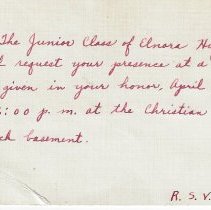 The Junior Class of Elnora
request your presence at a
given in your honor, April
:00 p. m. at the Christian
basement.
R. S. V.